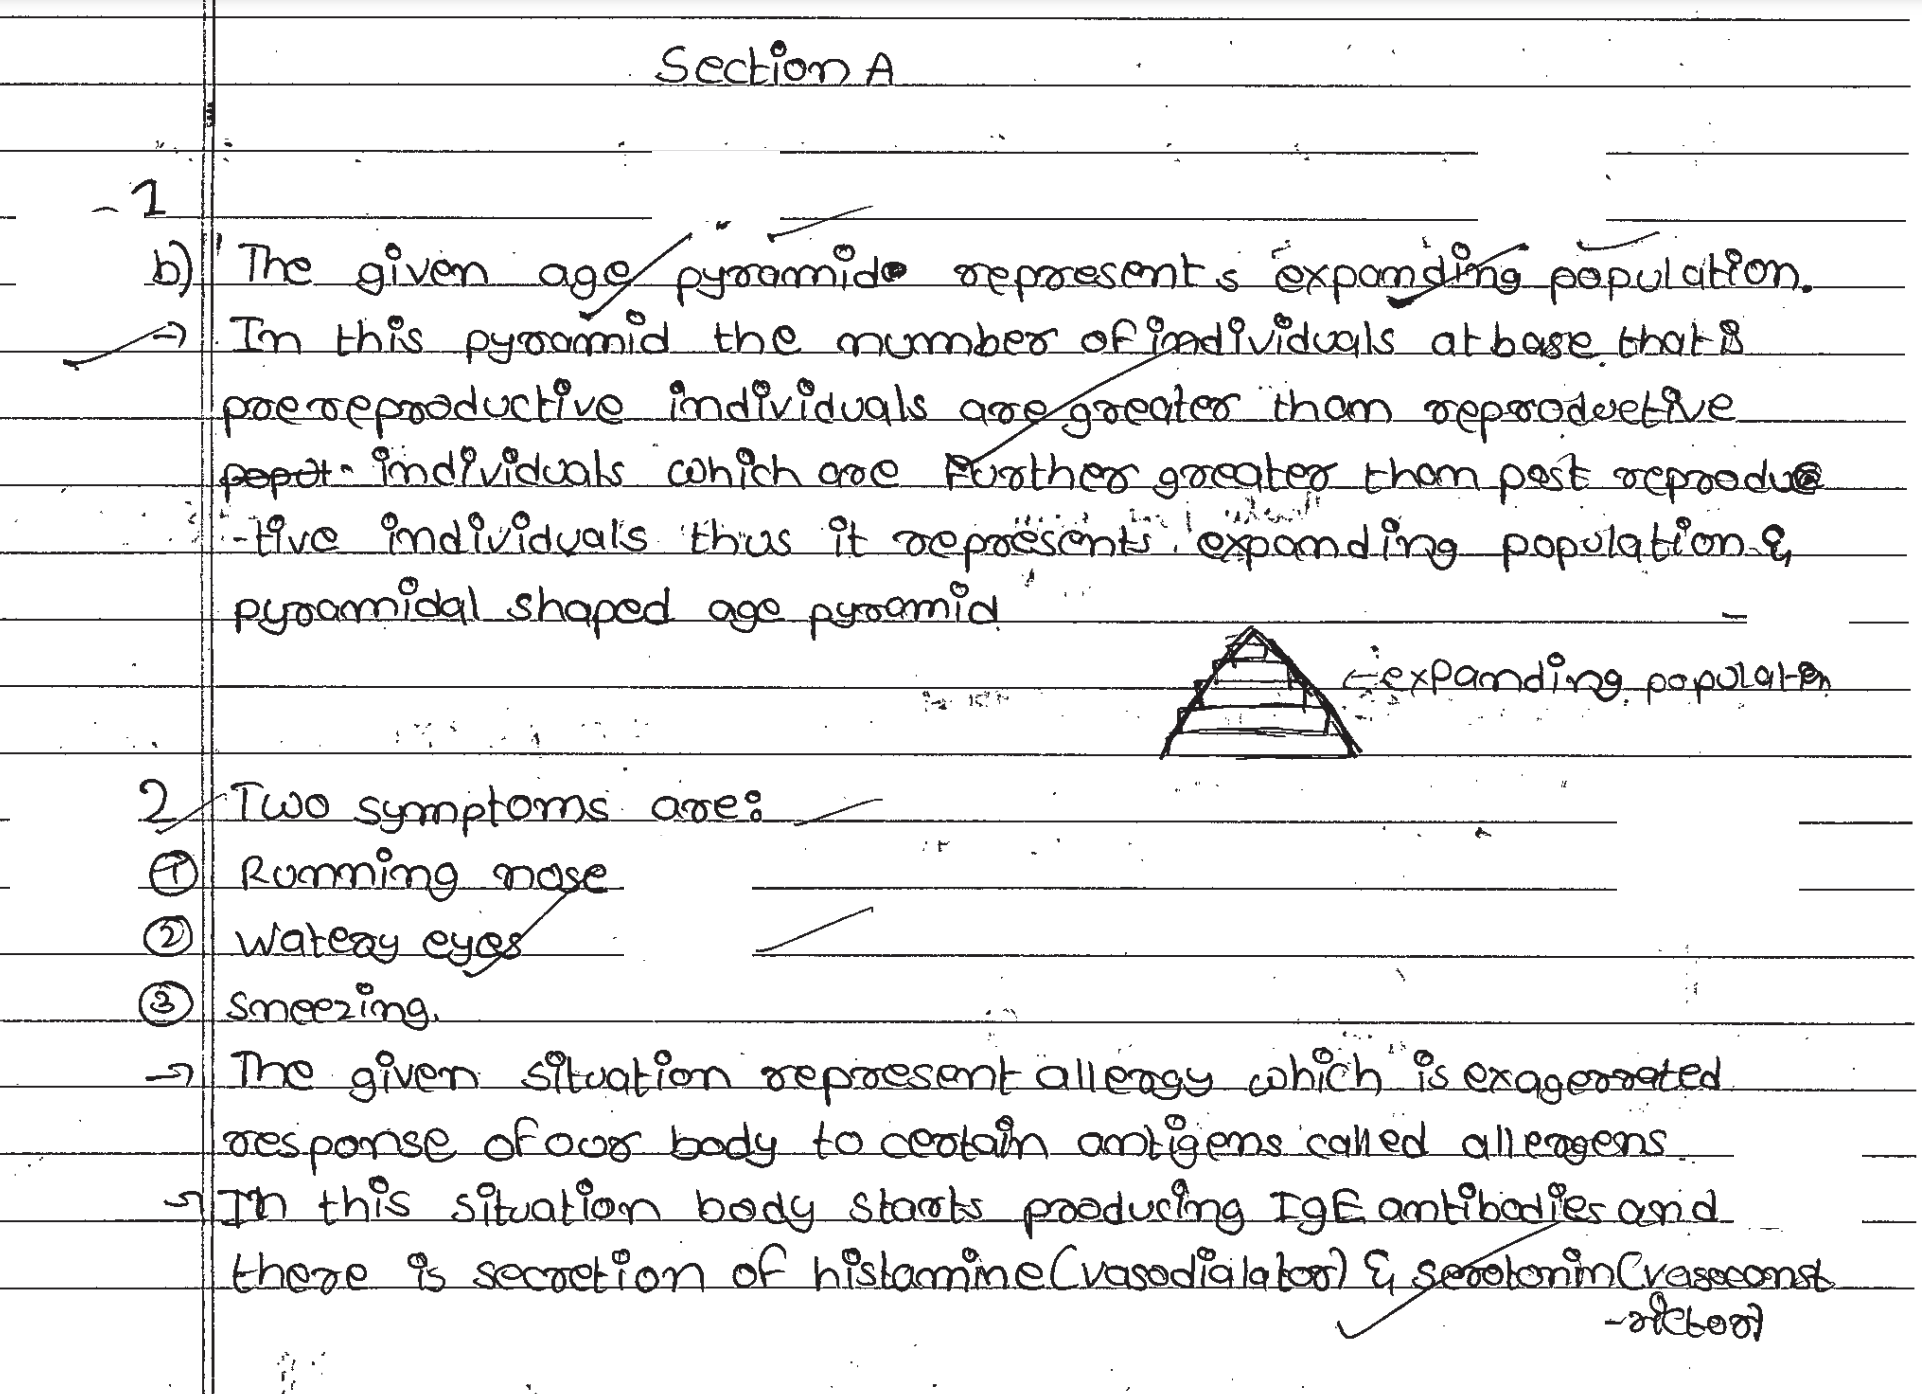 Section A
1
b) The given age pyramid represents expanding population.
→ In this pyramid the number of individuals at base that is
prereproductive individuals are greater than reproductive
popul- individuals which are further greater than post reproduc
-tive individuals thus it represents expanding population &
pyramidal shaped age pyramid
← expanding population
2 Two symptoms are:
① Running nose
② Watery eyes
③ Sneezing.
→ The given situation represent allergy which is exagerrated
response of our body to certain antigens called allergens.
→ In this situation body starts producing IgE antibodies and
there is secretion of histamine (vasodialator) & serotonin (vasoconst
-rictor)